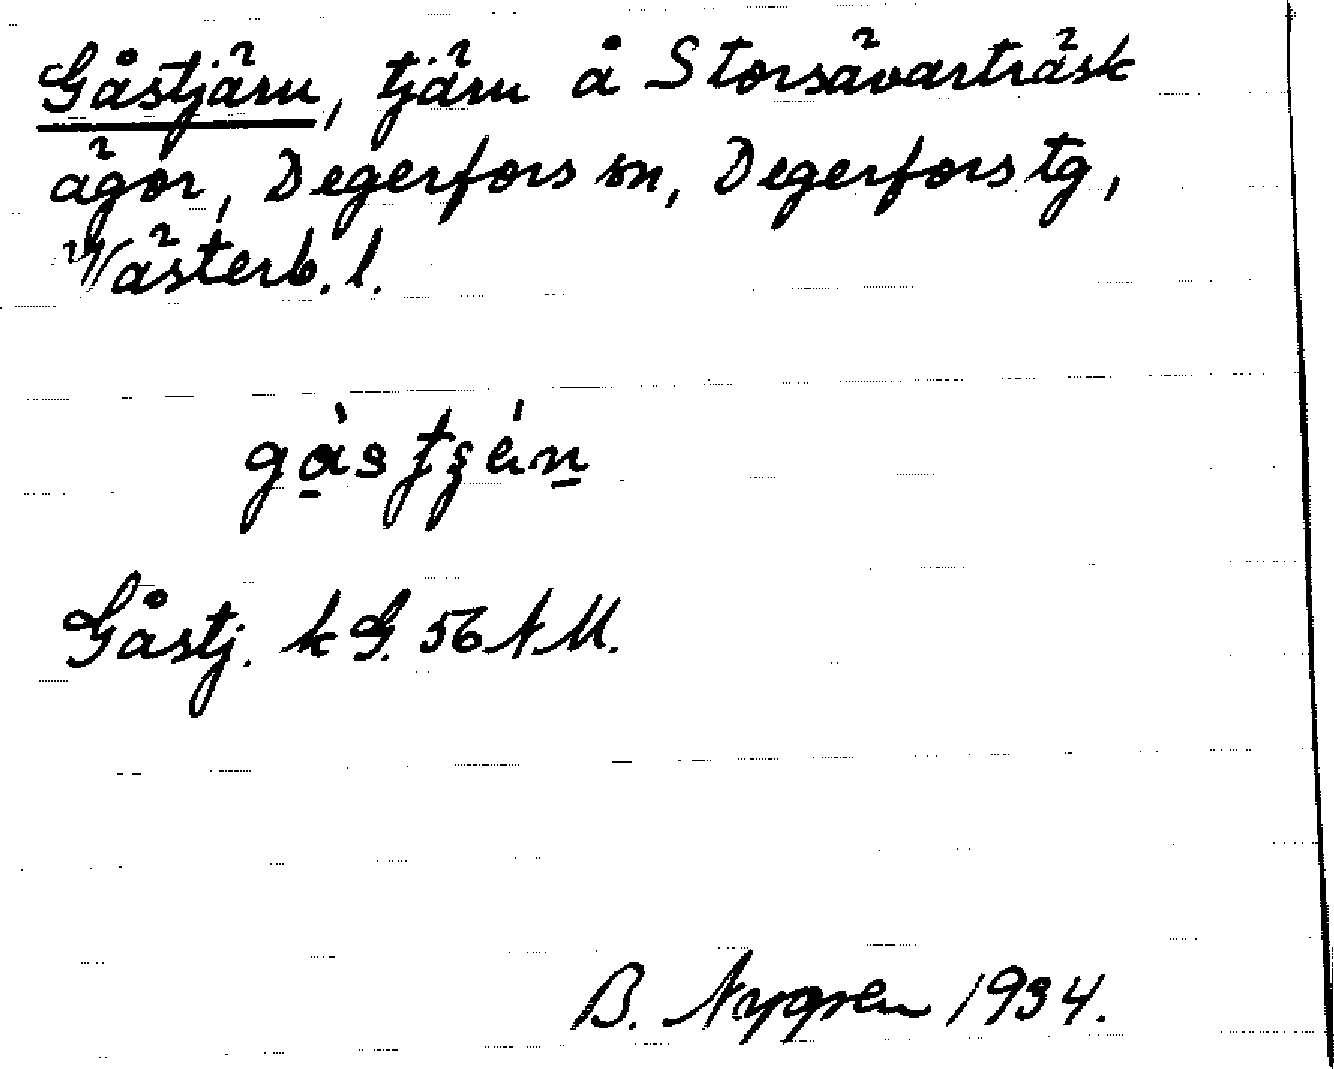 Gåstjärn, tjärn å Storsävarträsk
ägor, Degerfors sn, Degerfors tg,
Västerb. l.
Gåstj. k G. 56 NM.
B. Nygren 1934.